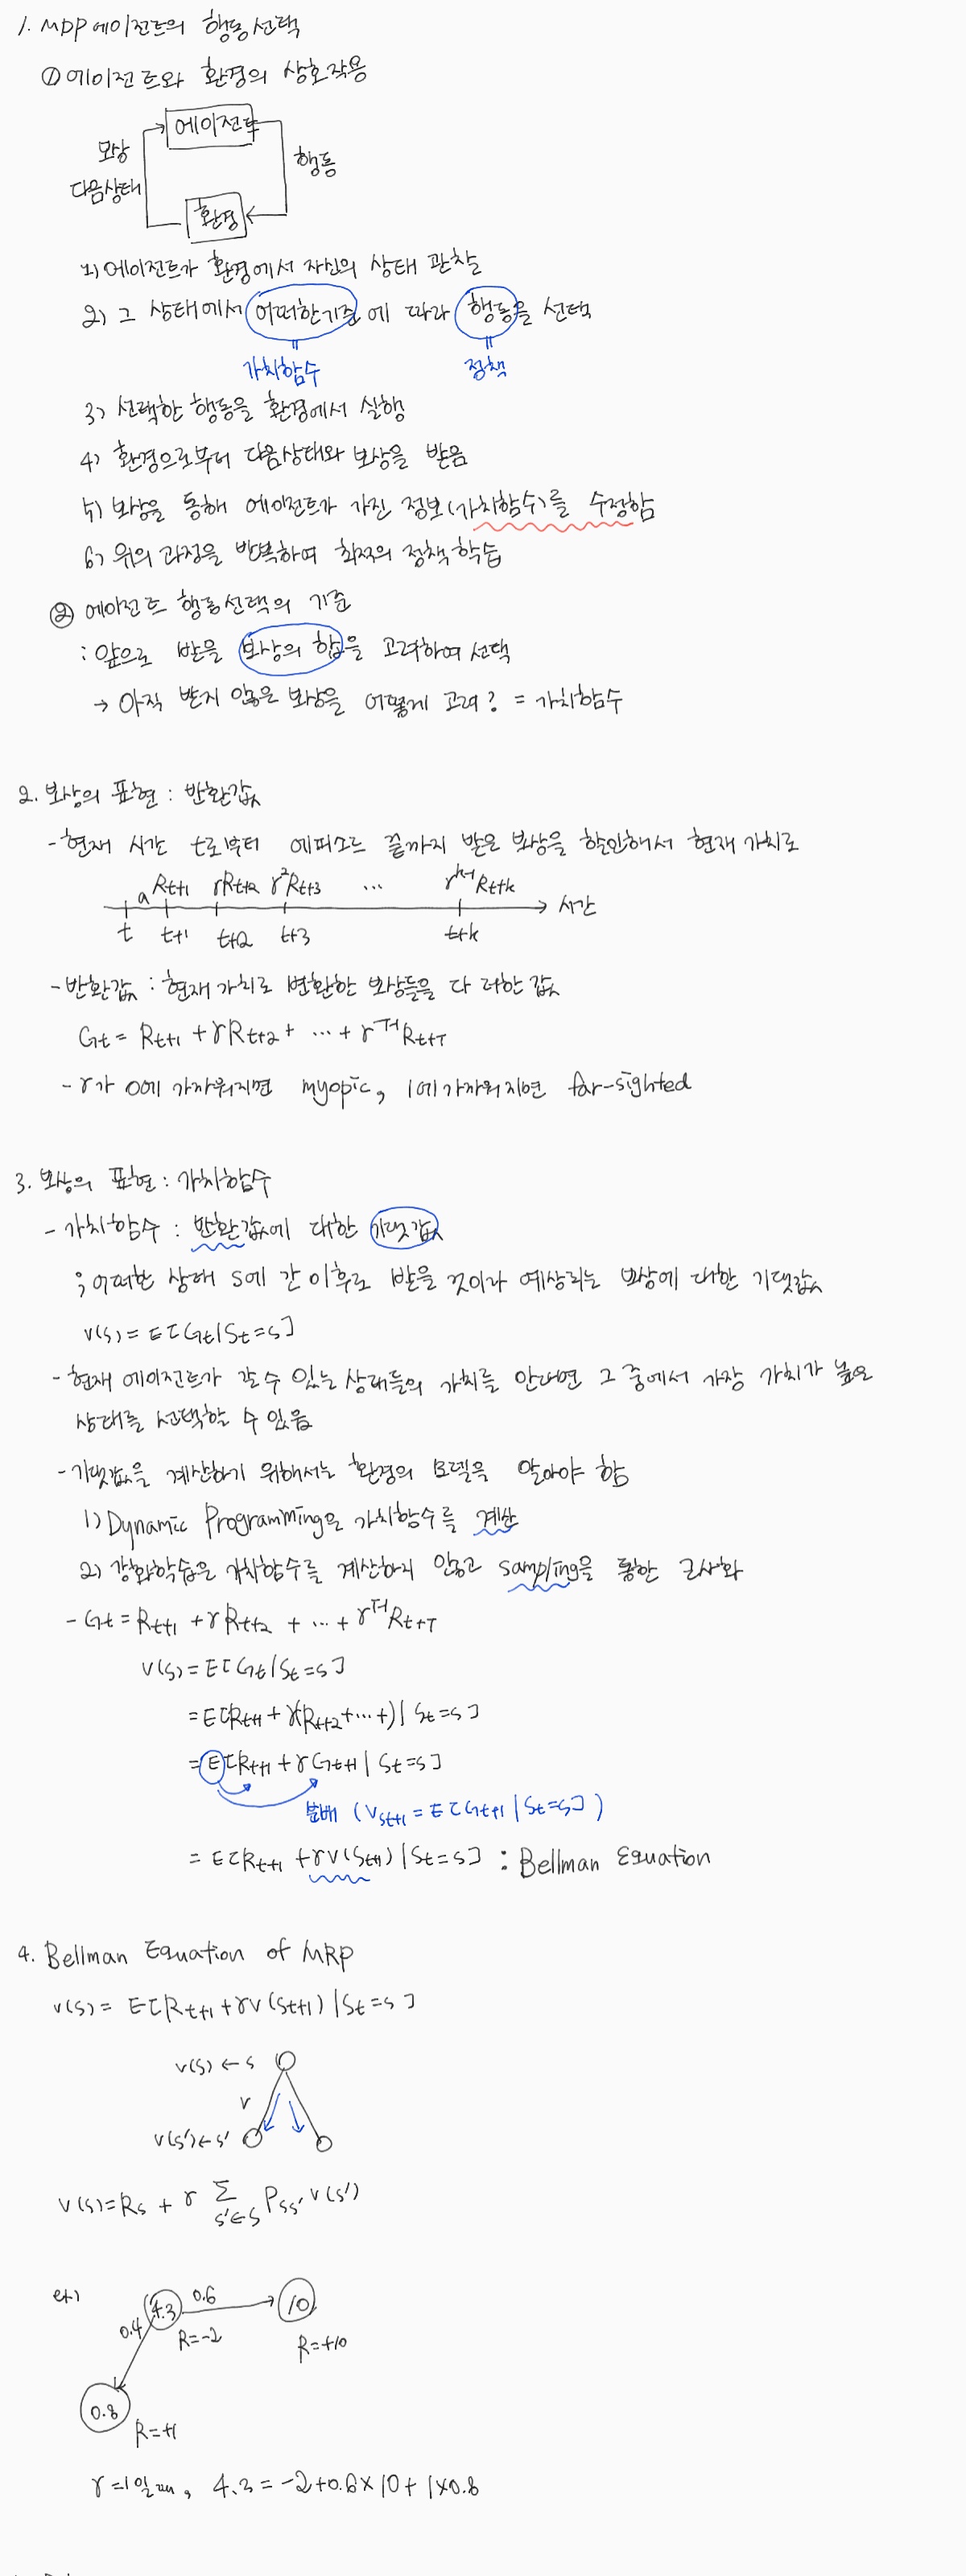 1. MDP 에이전트의 행동선택
① 에이전트와 환경의 상호작용
에이전트
보상
다음상태
행동
환경
1) 에이전트가 환경에서 자신의 상태 관찰
2) 그 상태에서 어떠한기준에 따라 행동을 선택
= 가치함수
= 정책
3) 선택한 행동을 환경에서 실행
4) 환경으로부터 다음상태와 보상을 받음
5) 보상을 통해 에이전트가 가진 정보(가치함수)를 수정함
6) 위의 과정을 반복하여 최적의 정책 학습
② 에이전트 행동선택의 기준
: 앞으로 받을 보상의 합을 고려하여 선택
→ 아직 받지 않은 보상을 어떻게 고려? = 가치함수
2. 보상의 표현 : 반환값
- 현재 시간 t로부터 에피소드 끝까지 받은 보상을 할인해서 현재 가치로
a Rt+1 γRt+2 γ²Rt+3 ... γ^k-1 Rt+k
→ 시간
t t+1 t+2 t+3 t+k
- 반환값 : 현재가치로 변환한 보상들을 다 더한 값
Gt = Rt+1 + γRt+2 + ... + γ^T-1 Rt+T
- γ가 0에 가까워지면 myopic, 1에 가까워지면 far-sighted
3. 보상의 표현 : 가치함수
- 가치함수 : 반환값에 대한 기댓값
; 어떠한 상태 s에 간 이후로 받을 것이라 예상되는 보상에 대한 기댓값
v(s) = E[Gt | St=s]
- 현재 에이전트가 갈 수 있는 상태들의 가치를 안다면 그 중에서 가장 가치가 높은
상태를 선택할 수 있음
- 기댓값을 계산하기 위해서는 환경의 모델을 알아야 함
1) Dynamic Programming은 가치함수를 계산
2) 강화학습은 가치함수를 계산하지 않고 sampling을 통한 근사화
- Gt = Rt+1 + γRt+2 + ... + γ^T-1 Rt+T
v(s) = E[Gt | St=s]
= E[Rt+1 + γ(Rt+2 + ... +) | St=s]
= E[Rt+1 + γGt+1 | St=s]
분배 (Vst+1 = E[Gt+1 | St=s])
= E[Rt+1 + γv(St+1) | St=s] : Bellman Equation
4. Bellman Equation of MRP
v(s) = E[Rt+1 + γv(St+1) | St=s]
v(s) ← s
r
v(s') ← s'
v(s) = Rs + γ Σ s'∈S Pss' v(s')
ex)
4.3 0.6 10
0.4 R=-2
R=+10
0.8
R=+1
γ=1일 때, 4.3 = -2+0.6×10 + 1×0.8